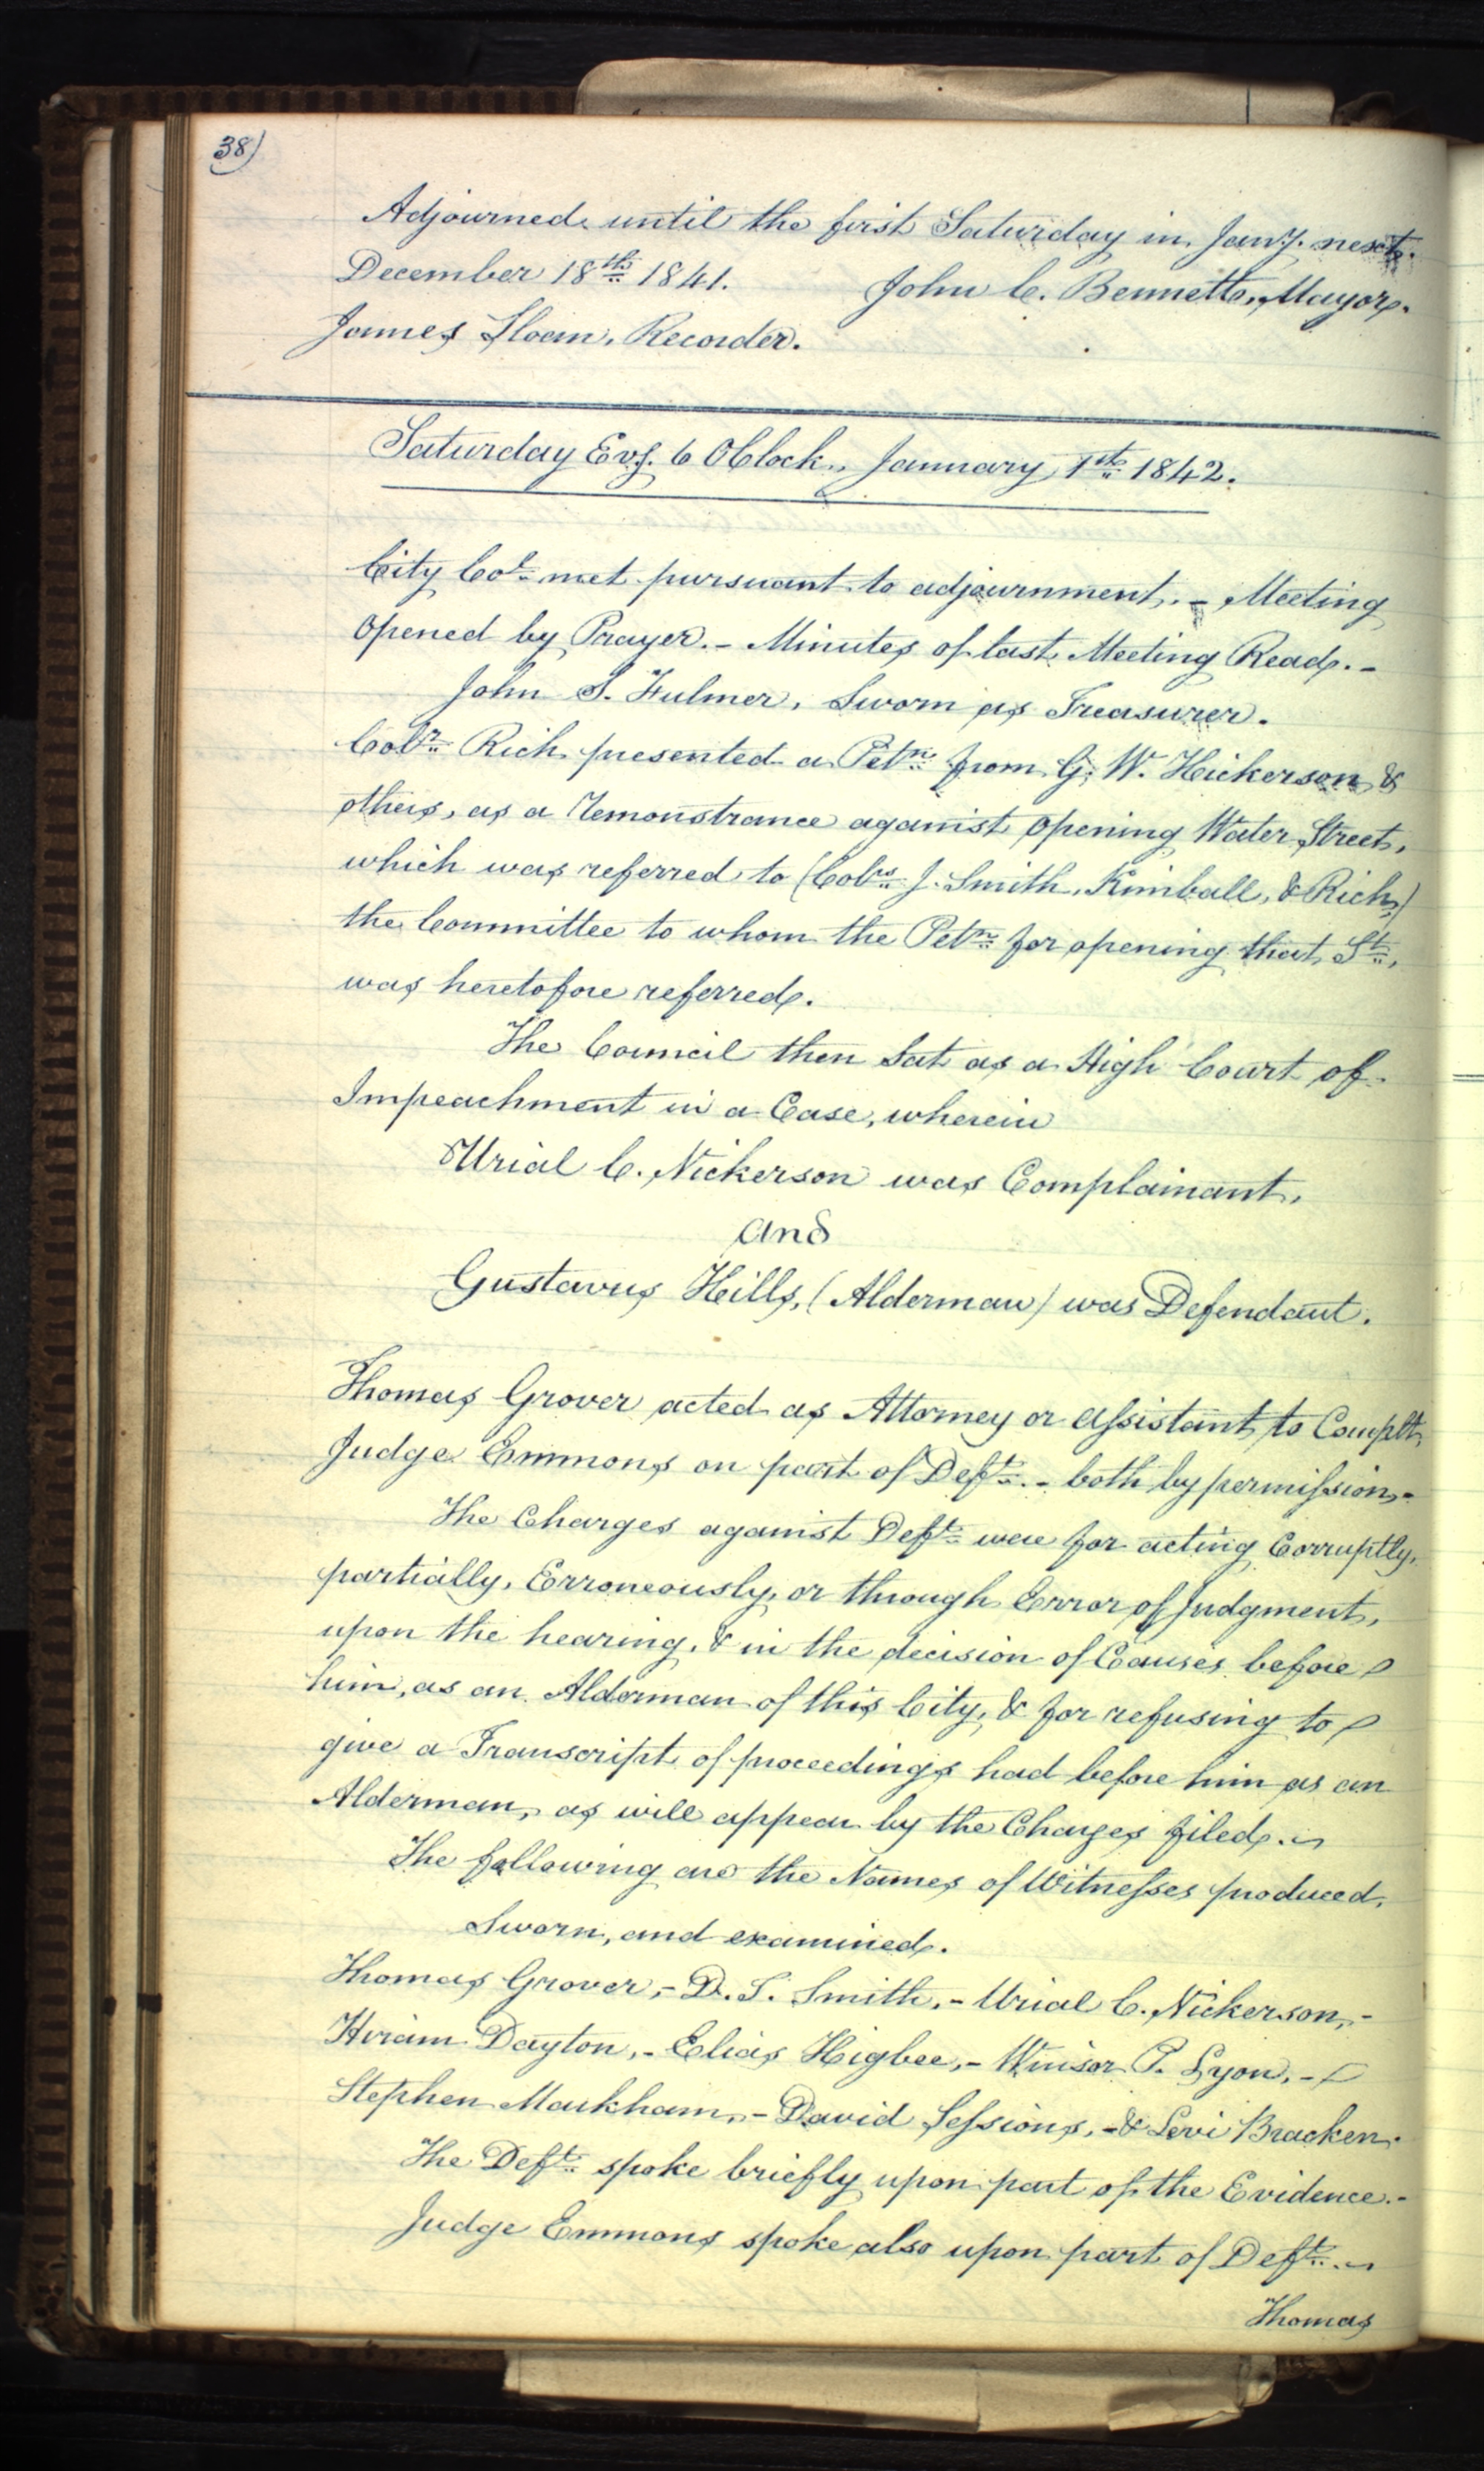 38)
Adjourned until the first Saturday in Jany. next.
December 18th 1841. John C. Bennett, Mayor.
James Sloan, Recorder.
Saturday Evg. 6 OClock, January 1st 1842.
City Col. met pursuant to adjournment. - Meeting
Opened by Prayer. - Minutes of last Meeting Read. -
John S. Fulmer, Sworn as Treasurer.
Colr. Rich presented a Petn. from G. W. Hickerson &
others, as a remonstrance against opening Water Street,
which was referred to (Colrs. J. Smith, Kimball, & Rich,)
the Committee to whom the Petn. for opening that St.,
was heretofore referred.
The Council then Sat as a High Court of
Impeachment in a Case, wherein
Urial C. Nickerson was Complainant,
and
Gustavus Hills, (Alderman) was Defendant.
Thomas Grover acted as Attorney or assistant to Complt,
Judge Emmons on part of Deft. - both by permission, -
The Charges against Deft. were for acting Corruptly,
partially, Erroneously, or through Error of Judgment,
upon the hearing, & in the decision of Causes before
him, as an Alderman of this City, & for refusing to
give a Transcript of proceedings had before him as an
Alderman, as will appear by the Charges filed. -
The following are the Names of Witnesses produced,
Sworn, and examined.
Thomas Grover, - D. S. Smith, - Urial C. Nickerson, -
Hiram Dayton, - Elias Higbee, - Winsor P. Lyon, -
Stephen Markham, - David Sessions, - & Levi Bracken.
The Deft. spoke briefly upon part of the Evidence. -
Judge Emmons spoke also upon part of Deft. -
Thomas